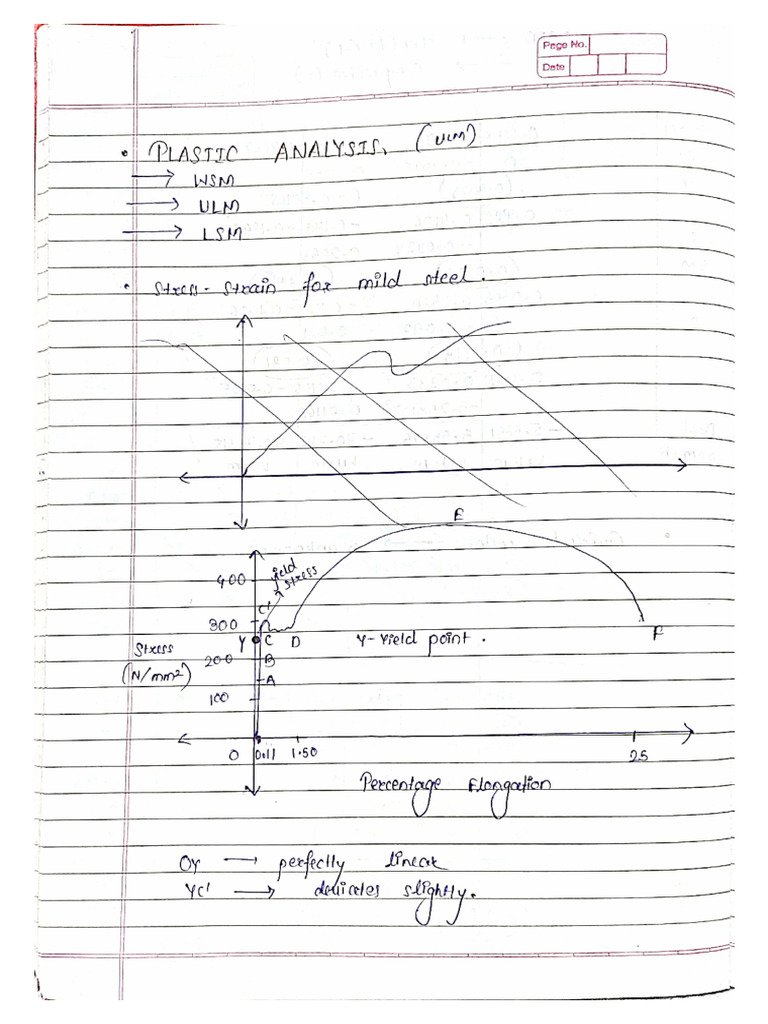 Page No.
Date
• PLASTIC ANALYSIS. (ULM)
→ WSM
→ ULM
→ LSM
• Stress-Strain for mild steel.
E
400
yield stress
C'
300
Y C D
Y-Yield point.
F
Stress
(N/mm²)
200
B
A
100
0 0.11 1.50 25
Percentage Elongation
OY → perfectly linear
YC' → deviates slightly.